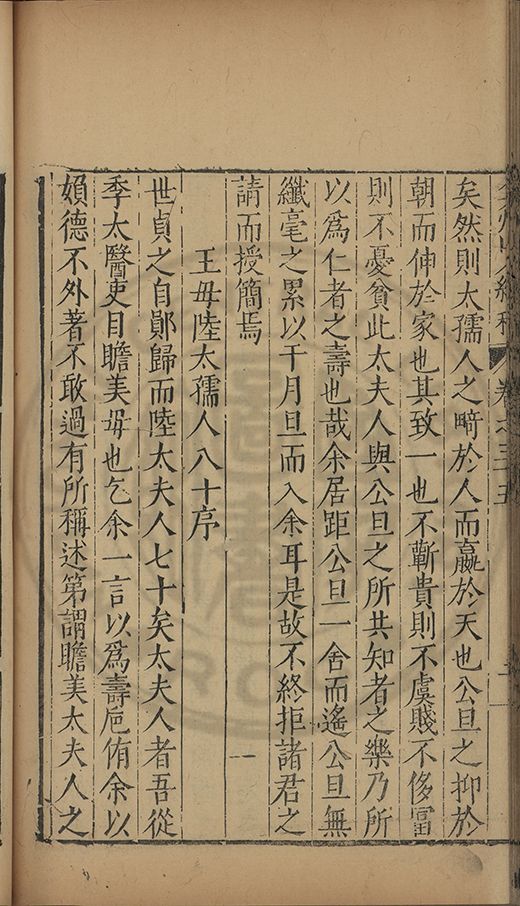 矣然則太孺人之畸於人而嬴於天也公旦之抑於
朝而伸於家也其致一也不蘄貴則不虞賤不侈富
則不憂貧此太夫人與公旦之所共知者之樂乃所
以為仁者之壽也哉余居距公旦一舍而遙公旦無
纖毫之累以干月旦而入余耳是故不終拒諸君之
請而授簡焉
王母陸太孺人八十序
世貞之自鄖歸而陸太夫人七十矣太夫人者吾從
季太醫吏目瞻美母也乞余一言以為壽巵侑余以
媍德不外著不敢過有所稱述第謂瞻美太夫人之